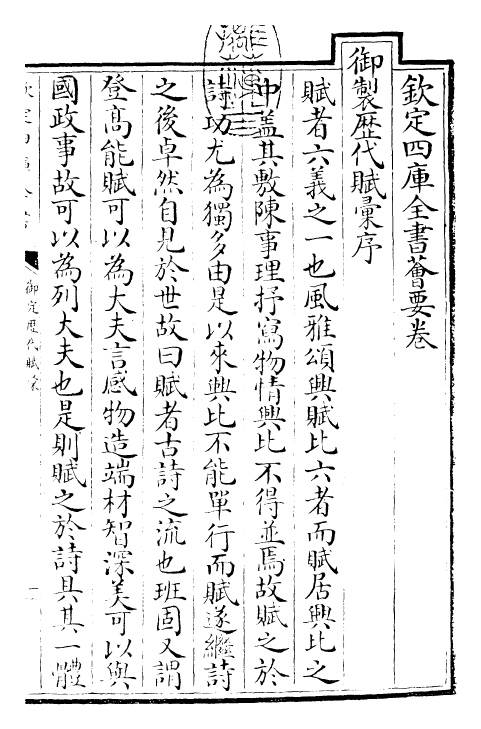 欽定四庫全書薈要卷
御製歷代賦彙序
賦者六義之一也風雅頌興賦比六者而賦居興比之
中蓋其敷陳事理抒寫物情興比不得並焉故賦之於
詩功尤為獨多由是以來興比不能單行而賦遂繼詩
之後卓然自見於世故曰賦者古詩之流也班固又謂
登高能賦可以為大夫言感物造端材智深美可以與
國政事故可以為列大夫也是則賦之於詩具其一體
御定歷代賦彙
一